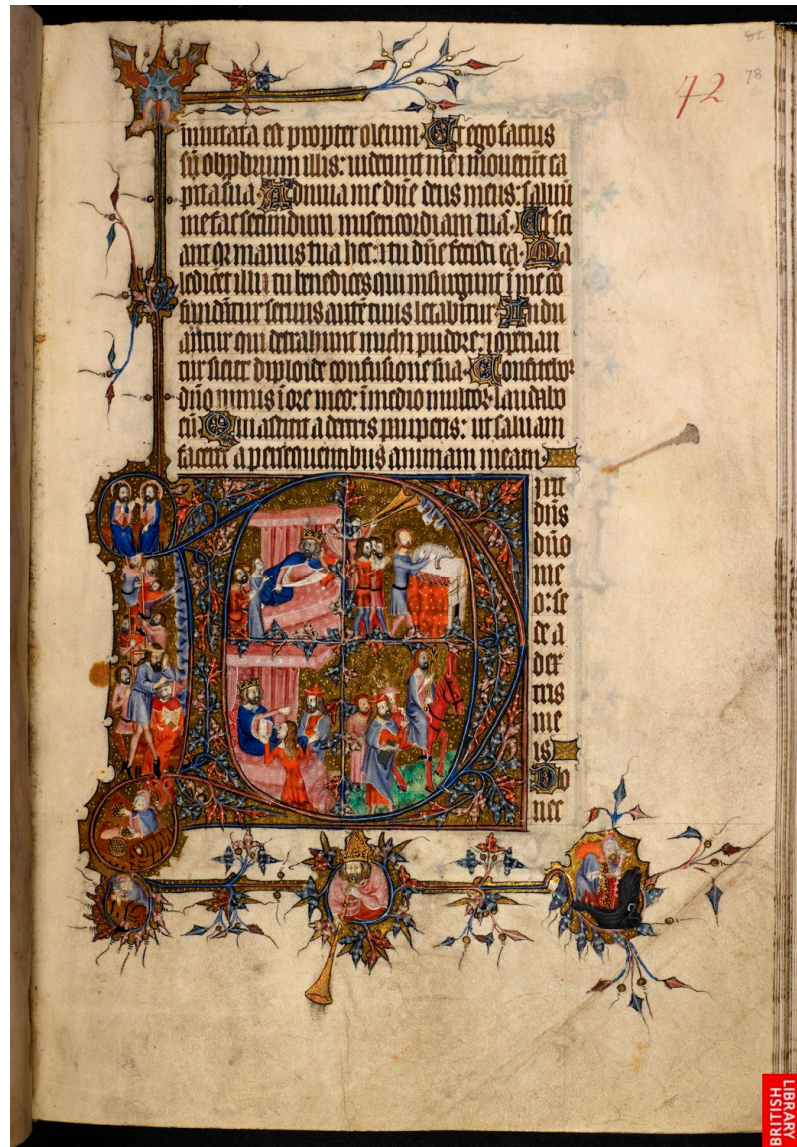 82
78
42
inmutata est propter oleum Et ego factus
sū obprbrium illis: uiderunt me ⁊ mouerūt ca
pita sua Adiuua me dñe deus meus: saluū
me fac secundum misericordiam tuā. Et sci
ant qꝛ manus tua hec: ⁊ tu dñe fecisti ea. Ma
ledicēt illi ⁊ tu benedices qui insurgunt ī me cō
fundātur seruus autē tuus letabitur. Indu
antur qui detrahunt michi pudore: ⁊ operian
tur sicut diploide confusione sua. Confitebor
dño nimis ī ore meo: ⁊ ī medio multoꝝ laudabo
eū Qui astitit a dextris pauperis: ut saluam
faceret a persequentibus animam meam
Dixit
dñs
dño
me
o: se
de a
dex
tris
me
is
Do
nec
BRITISH
LIBRARY